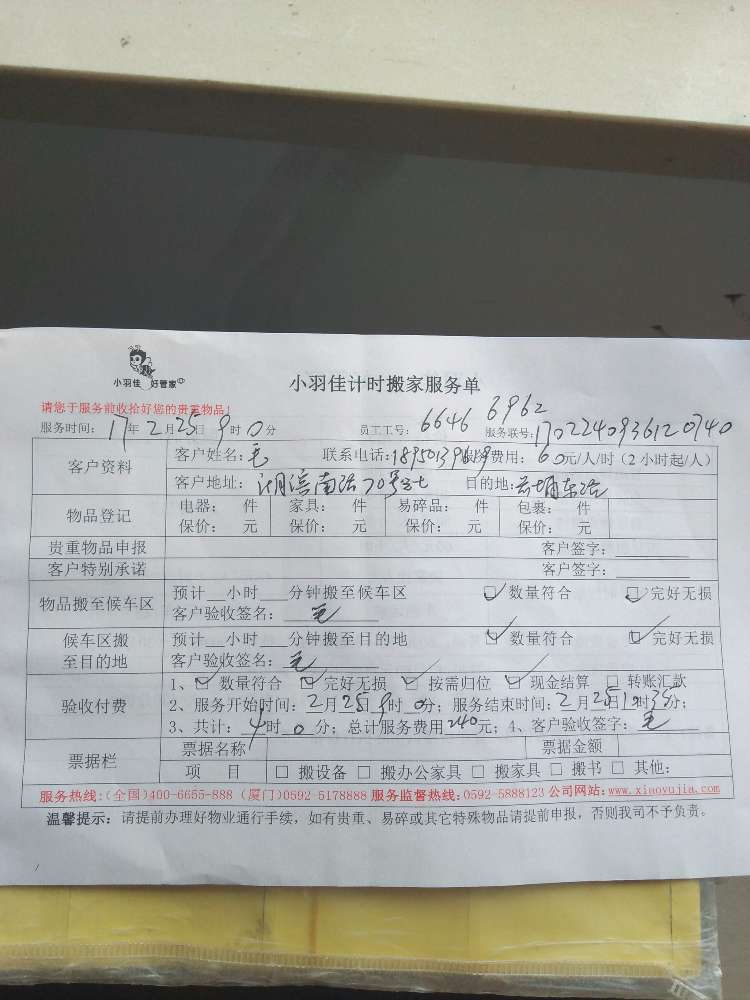 小羽佳 好管家
小羽佳计时搬家服务单
请您于服务前收拾好您的贵重物品!
服务时间: 17年2月25日9时0分 员工工号: 6646 6962 服务联号: 170224093612 0740
客户资料 客户姓名: 毛 联系电话: 服务费用: 60元/人/时(2小时起/人)
客户地址: 湖滨南路70号 目的地:
物品登记 电器: 件 家具: 件 易碎品: 件 包裹: 件
保价: 元 保价: 元 保价: 元 保价: 元
贵重物品申报 客户签字:
客户特别承诺 客户签字:
物品搬至候车区 预计__小时___分钟搬至候车区 数量符合 完好无损
客户验收签名: 毛
候车区搬至目的地 预计__小时___分钟搬至目的地 数量符合 完好无损
客户验收签名: 毛
验收付费 1、 数量符合 完好无损 按需归位 现金结算 转账汇款
2、服务开始时间: 2月25日9时0分; 服务结束时间: 2月25日 时35分;
3、共计: 4时0分; 总计服务费用240元; 4、客户验收签字: 毛
票据栏 票据名称 票据金额
项 目 □ 搬设备 □ 搬办公家具 □ 搬家具 □ 搬书 □ 其他:
服务热线:(全国)400-6655-888 (厦门)0592-5178888 服务监督热线:0592-5888123 公司网站:www.xiaoyujia.com
温馨提示: 请提前办理好物业通行手续, 如有贵重、易碎或其它特殊物品请提前申报, 否则我司不予负责。